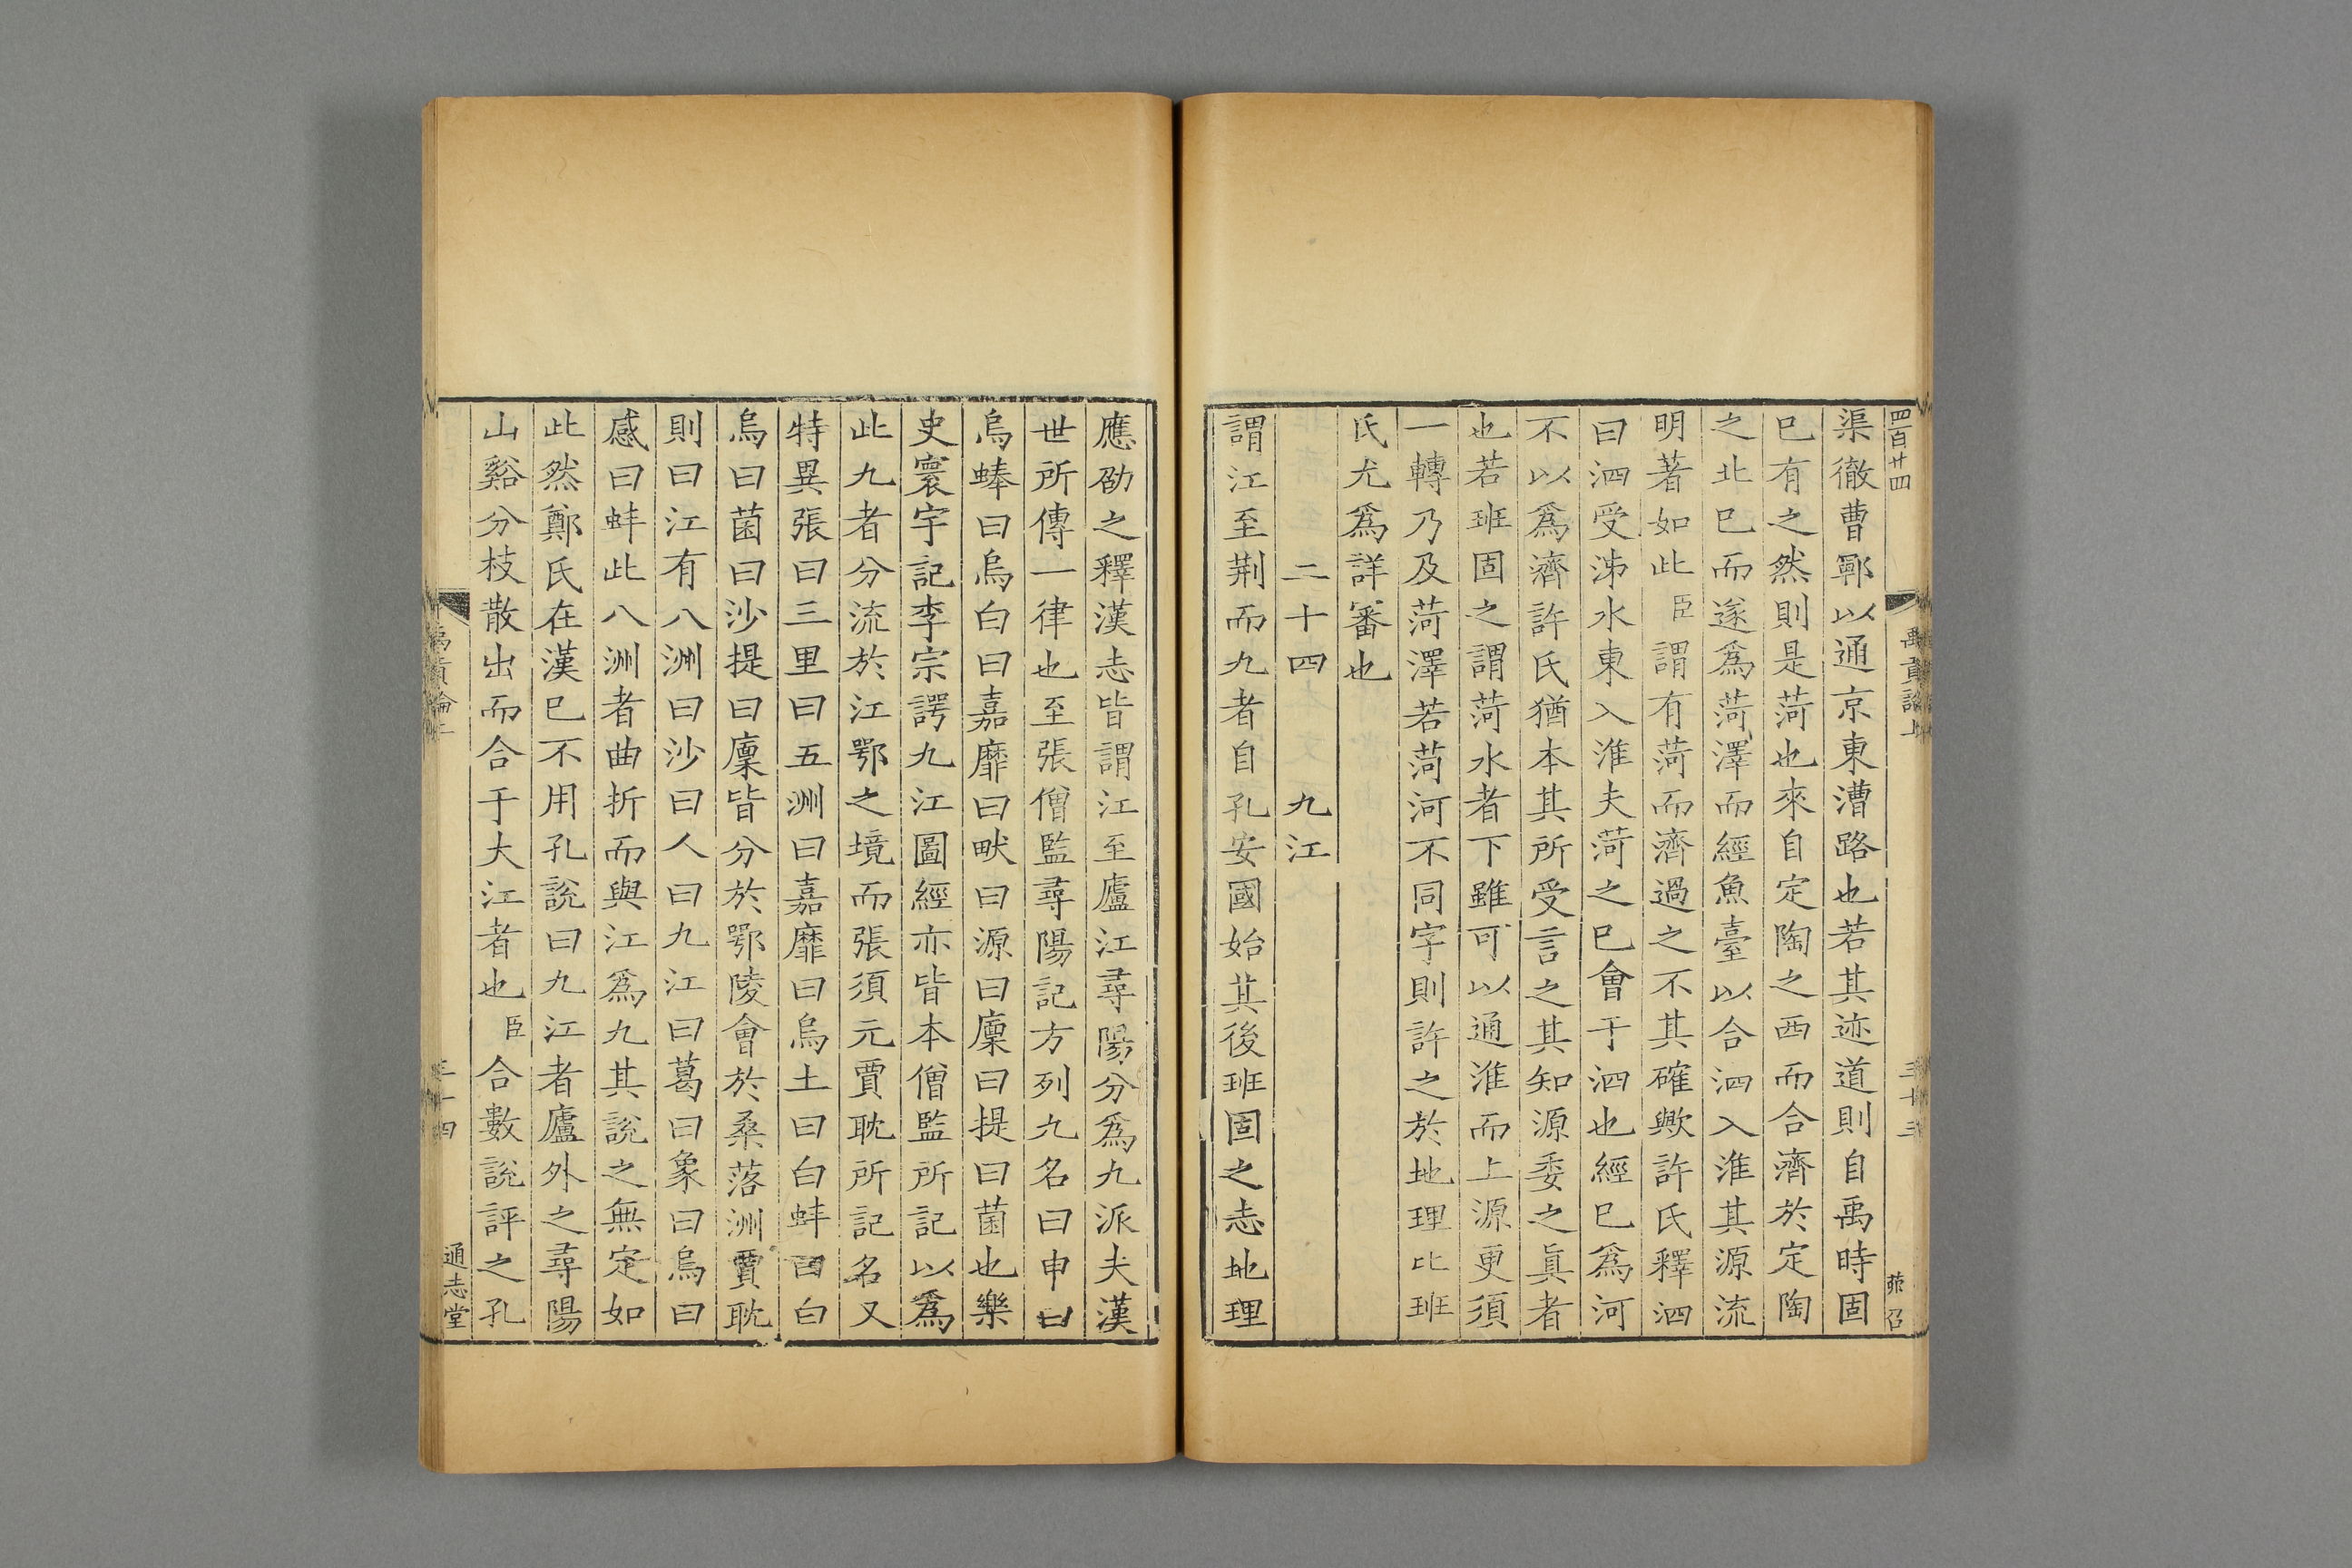 四百廿四
禹貢論上
三十三
渠徹曹鄆以通京東漕路也若其迹道則自禹時固
已有之然則是菏也來自定陶之西而合濟於定陶
之北已而遂爲菏澤而經魚臺以合泗入淮其源流
明著如此臣謂有菏而濟過之不其確歟許氏釋泗
曰泗受泲水東入淮夫菏之已會于泗也經已爲河
不以爲濟許氏猶本其所受言之其知源委之眞者
也若班固之謂菏水者下雖可以通淮而上源更須
一轉乃及菏澤若菏河不同字則許之於地理比班
氏尤爲詳審也
二十四 九江
謂江至荆而九者自孔安國始其後班固之志地理
應劭之釋漢志皆謂江至廬江尋陽分爲九派夫漢
世所傳一律也至張僧監尋陽記方列九名曰申曰
烏蜯曰烏白曰嘉靡曰畎曰源曰廩曰提曰菌也樂
史寰宇記李宗諤九江圖經亦皆本僧監所記以爲
此九者分流於江鄂之境而張須元賈耽所記名又
特異張曰三里曰五洲曰嘉靡曰烏土曰白蚌曰白
烏曰菌曰沙提曰廩皆分於鄂陵會於桑落洲賈耽
則曰江有八洲曰沙曰人曰九江曰葛曰象曰烏曰
感曰蚌此八洲者曲折而與江爲九其說之無定如
此然鄭氏在漢已不用孔說曰九江者廬外之尋陽
山谿分枝散出而合于大江者也臣合數說評之孔
禹貢論上
三十四
通志堂